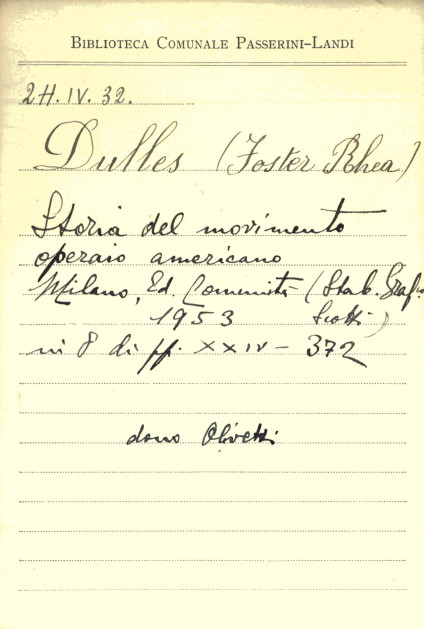 BIBLIOTECA COMUNALE PASSERINI-LANDI
2H. IV. 32.
Dulles (Foster Rhea)
Storia del movimento
operaio americano
Milano, Ed. Comunità (Stab. Graf.
1953 Scotti)
in 8 di pp. XXIV - 372
dono Olivetti